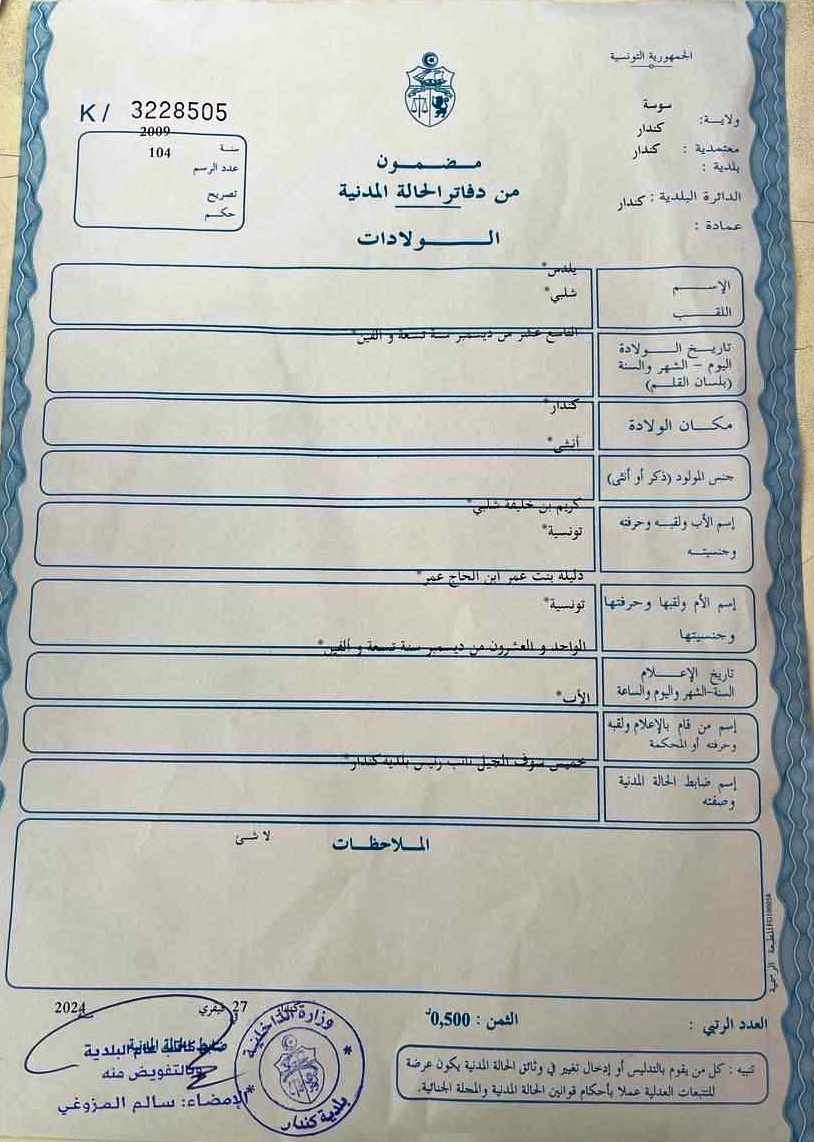 الجمهورية التونسية
ولاية: سوسة
معتمدية : كندار
بلدية : كندار
الدائرة البلدية : كندار
عمادة :
K/ 3228505
سنة 2009
عدد الرسم 104
تصريح
حكم
مضمون
من دفاتر الحالة المدنية
الولادات
الإسم يلدس*
اللقب شلبي*
تاريخ الولادة
اليوم – الشهر والسنة
(بلسان القلم)
التاسع عشر من ديسمبر سنة تسعة و ألفين*
مكان الولادة كندار*
جنس المولود (ذكر أو أنثى) أنثى*
إسم الأب ولقبه وحرفته
وجنسيته
كريم بن خليفة شلبي*
تونسية*
إسم الأم ولقبها وحرفتها
وجنسيتها
دليلة بنت عمر ابن الحاج عمر*
تونسية*
تاريخ الإعلام
السنة-الشهر واليوم والساعة
الواحد و العشرون من ديسمبر سنة تسعة و ألفين*
إسم من قام بالإعلام ولقبه
وحرفته أو المحكمة
الأب*
إسم ضابط الحالة المدنية
وصفته
خميس سوف الجيل نائب رئيس بلدية كندار*
الملاحظات
لا شئ
المطبعة الرسمية
العدد الرتبي :
الثمن : 0,500د
كندار 27 فيفري 2024
ضابط الحالة المدنية
كاتب عام البلدية
وبالتفويض منه
الإمضاء: سالم المزوغي
وزارة الداخلية
بلدية كندار
تنبيه : كل من يقوم بالتدليس أو إدخال تغيير في وثائق الحالة المدنية يكون عرضة
للتتبعات العدلية عملا بأحكام قوانين الحالة المدنية والمجلة الجنائية.